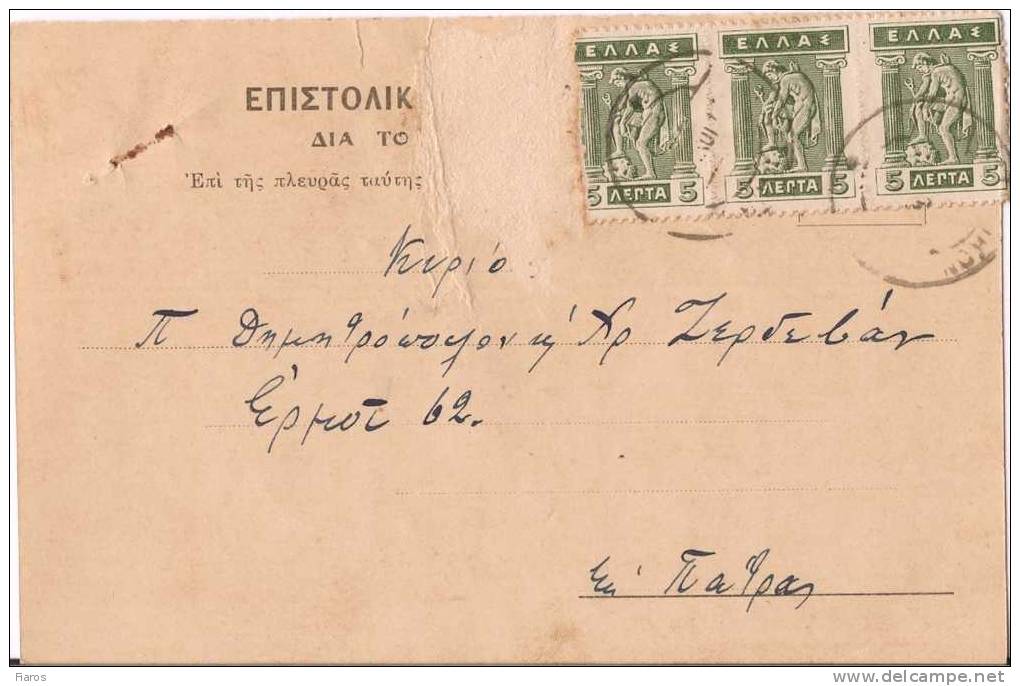 ΕΛΛΑΣ ΕΛΛΑΣ ΕΛΛΑΣ
5 ΛΕΠΤΑ 5 5 ΛΕΠΤΑ 5 5 ΛΕΠΤΑ 5
ΕΠΙΣΤΟΛΙΚ
ΔΙΑ ΤΟ
Ἐπὶ τῆς πλευρᾶς ταύτης
Κυριο
Π Δημητρόπουλον Χρ Ζερδεβάν
Ερμού 62.
Πάτρας
Fiaros
www.delcampe.net